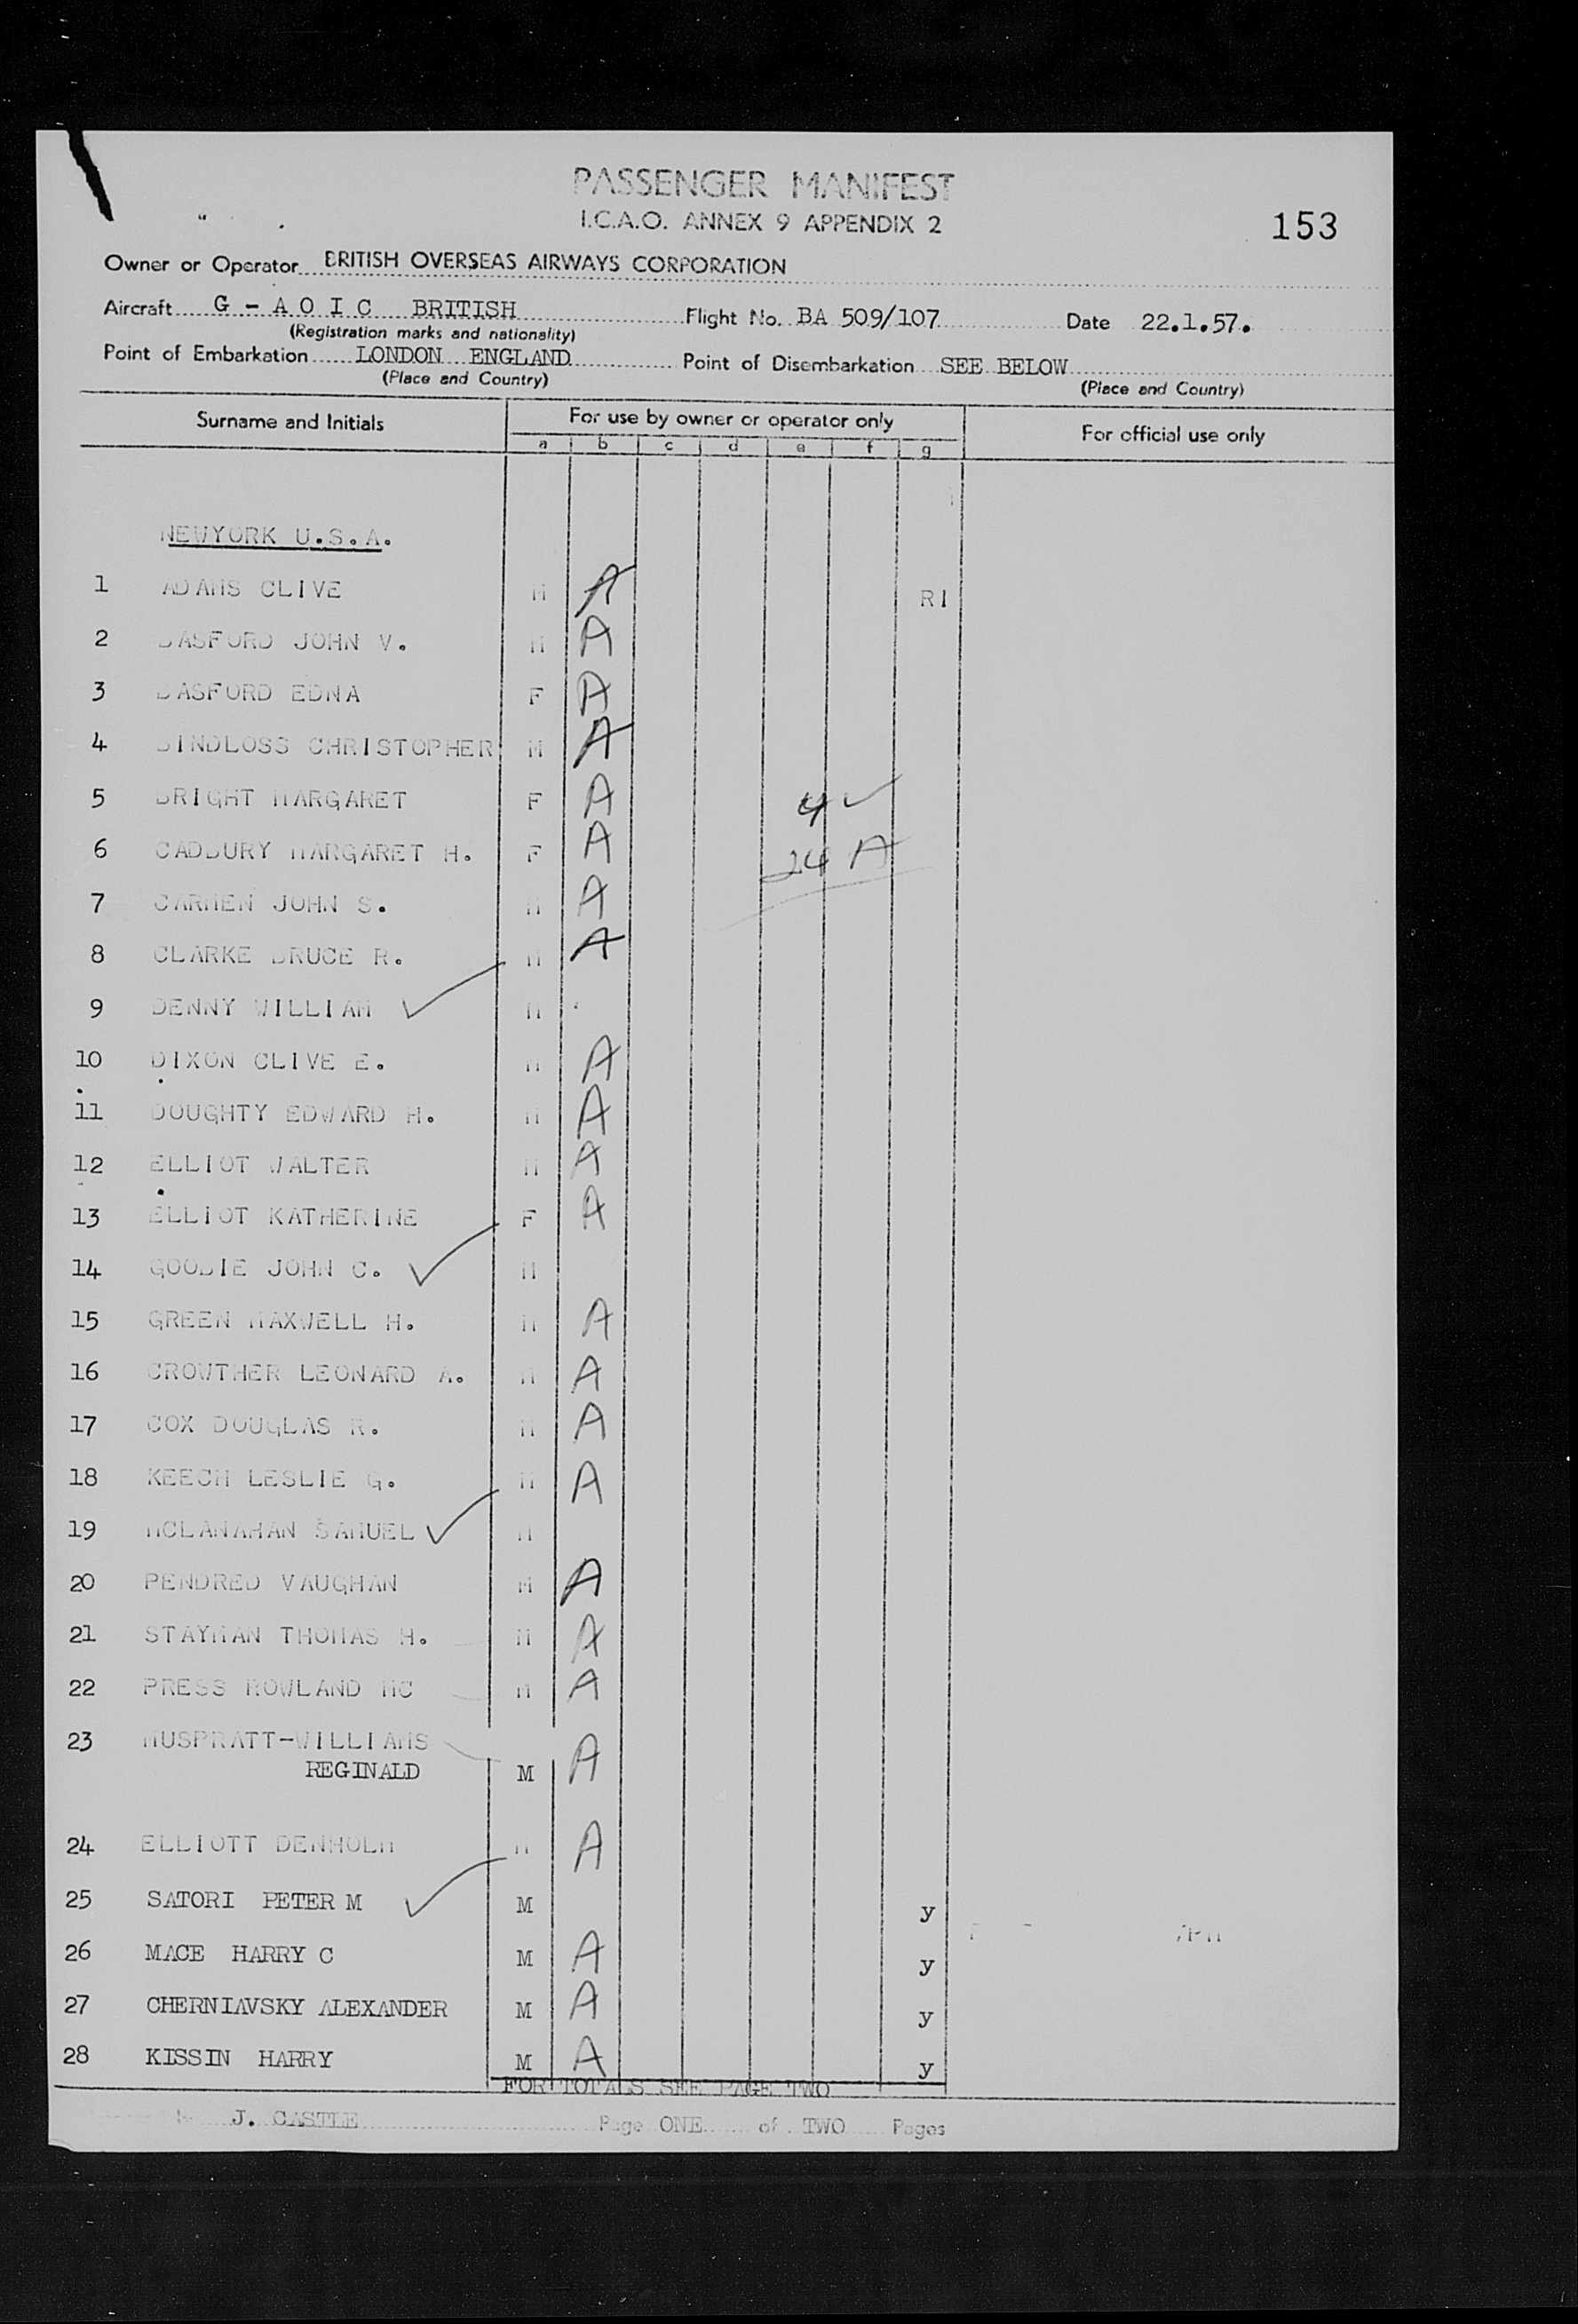 PASSENGER MANIFEST
I.C.A.O. ANNEX 9 APPENDIX 2
153
Owner or Operator BRITISH OVERSEAS AIRWAYS CORPORATION
Aircraft G - A O I C BRITISH Flight No. BA 509/107 Date 22.1.57.
(Registration marks and nationality)
Point of Embarkation LONDON ENGLAND Point of Disembarkation SEE BELOW
(Place and Country) (Place and Country)
Surname and Initials For use by owner or operator only For official use only
a b c d e f g
NEWYORK U.S.A.
1 ADAMS CLIVE M A RI
2 BASFORD JOHN V. M A
3 BASFORD EDNA F A
4 BINDLOSS CHRISTOPHER M A
5 BRIGHT MARGARET F A 4 ✓
6 CADBURY MARGARET H. F A 24 A
7 CARMEN JOHN S. M A
8 CLARKE BRUCE R. M A
9 DENNY WILLIAM ✓ M
10 DIXON CLIVE E. M A
11 DOUGHTY EDWARD H. M A
12 ELLIOT WALTER M A
13 ELLIOT KATHERINE F A
14 GOODIE JOHN C. ✓ M
15 GREEN MAXWELL H. M A
16 CROWTHER LEONARD A. M A
17 COX DOUGLAS R. M A
18 KEECH LESLIE G. M A
19 MCLANAHAN SAMUEL ✓ M
20 PENDRED VAUGHAN M A
21 STAYMAN THOMAS H. M A
22 PRESS ROWLAND MC M A
23 MUSPRATT-WILLIAMS
REGINALD M A
24 ELLIOTT DENHOLM M A
25 SATORI PETER M ✓ M y
26 MACE HARRY C M A y
27 CHERNIAVSKY ALEXANDER M A y
28 KISSIN HARRY M A y
FOR TOTALS SEE PAGE TWO
J. CASTLE Page ONE of TWO Pages